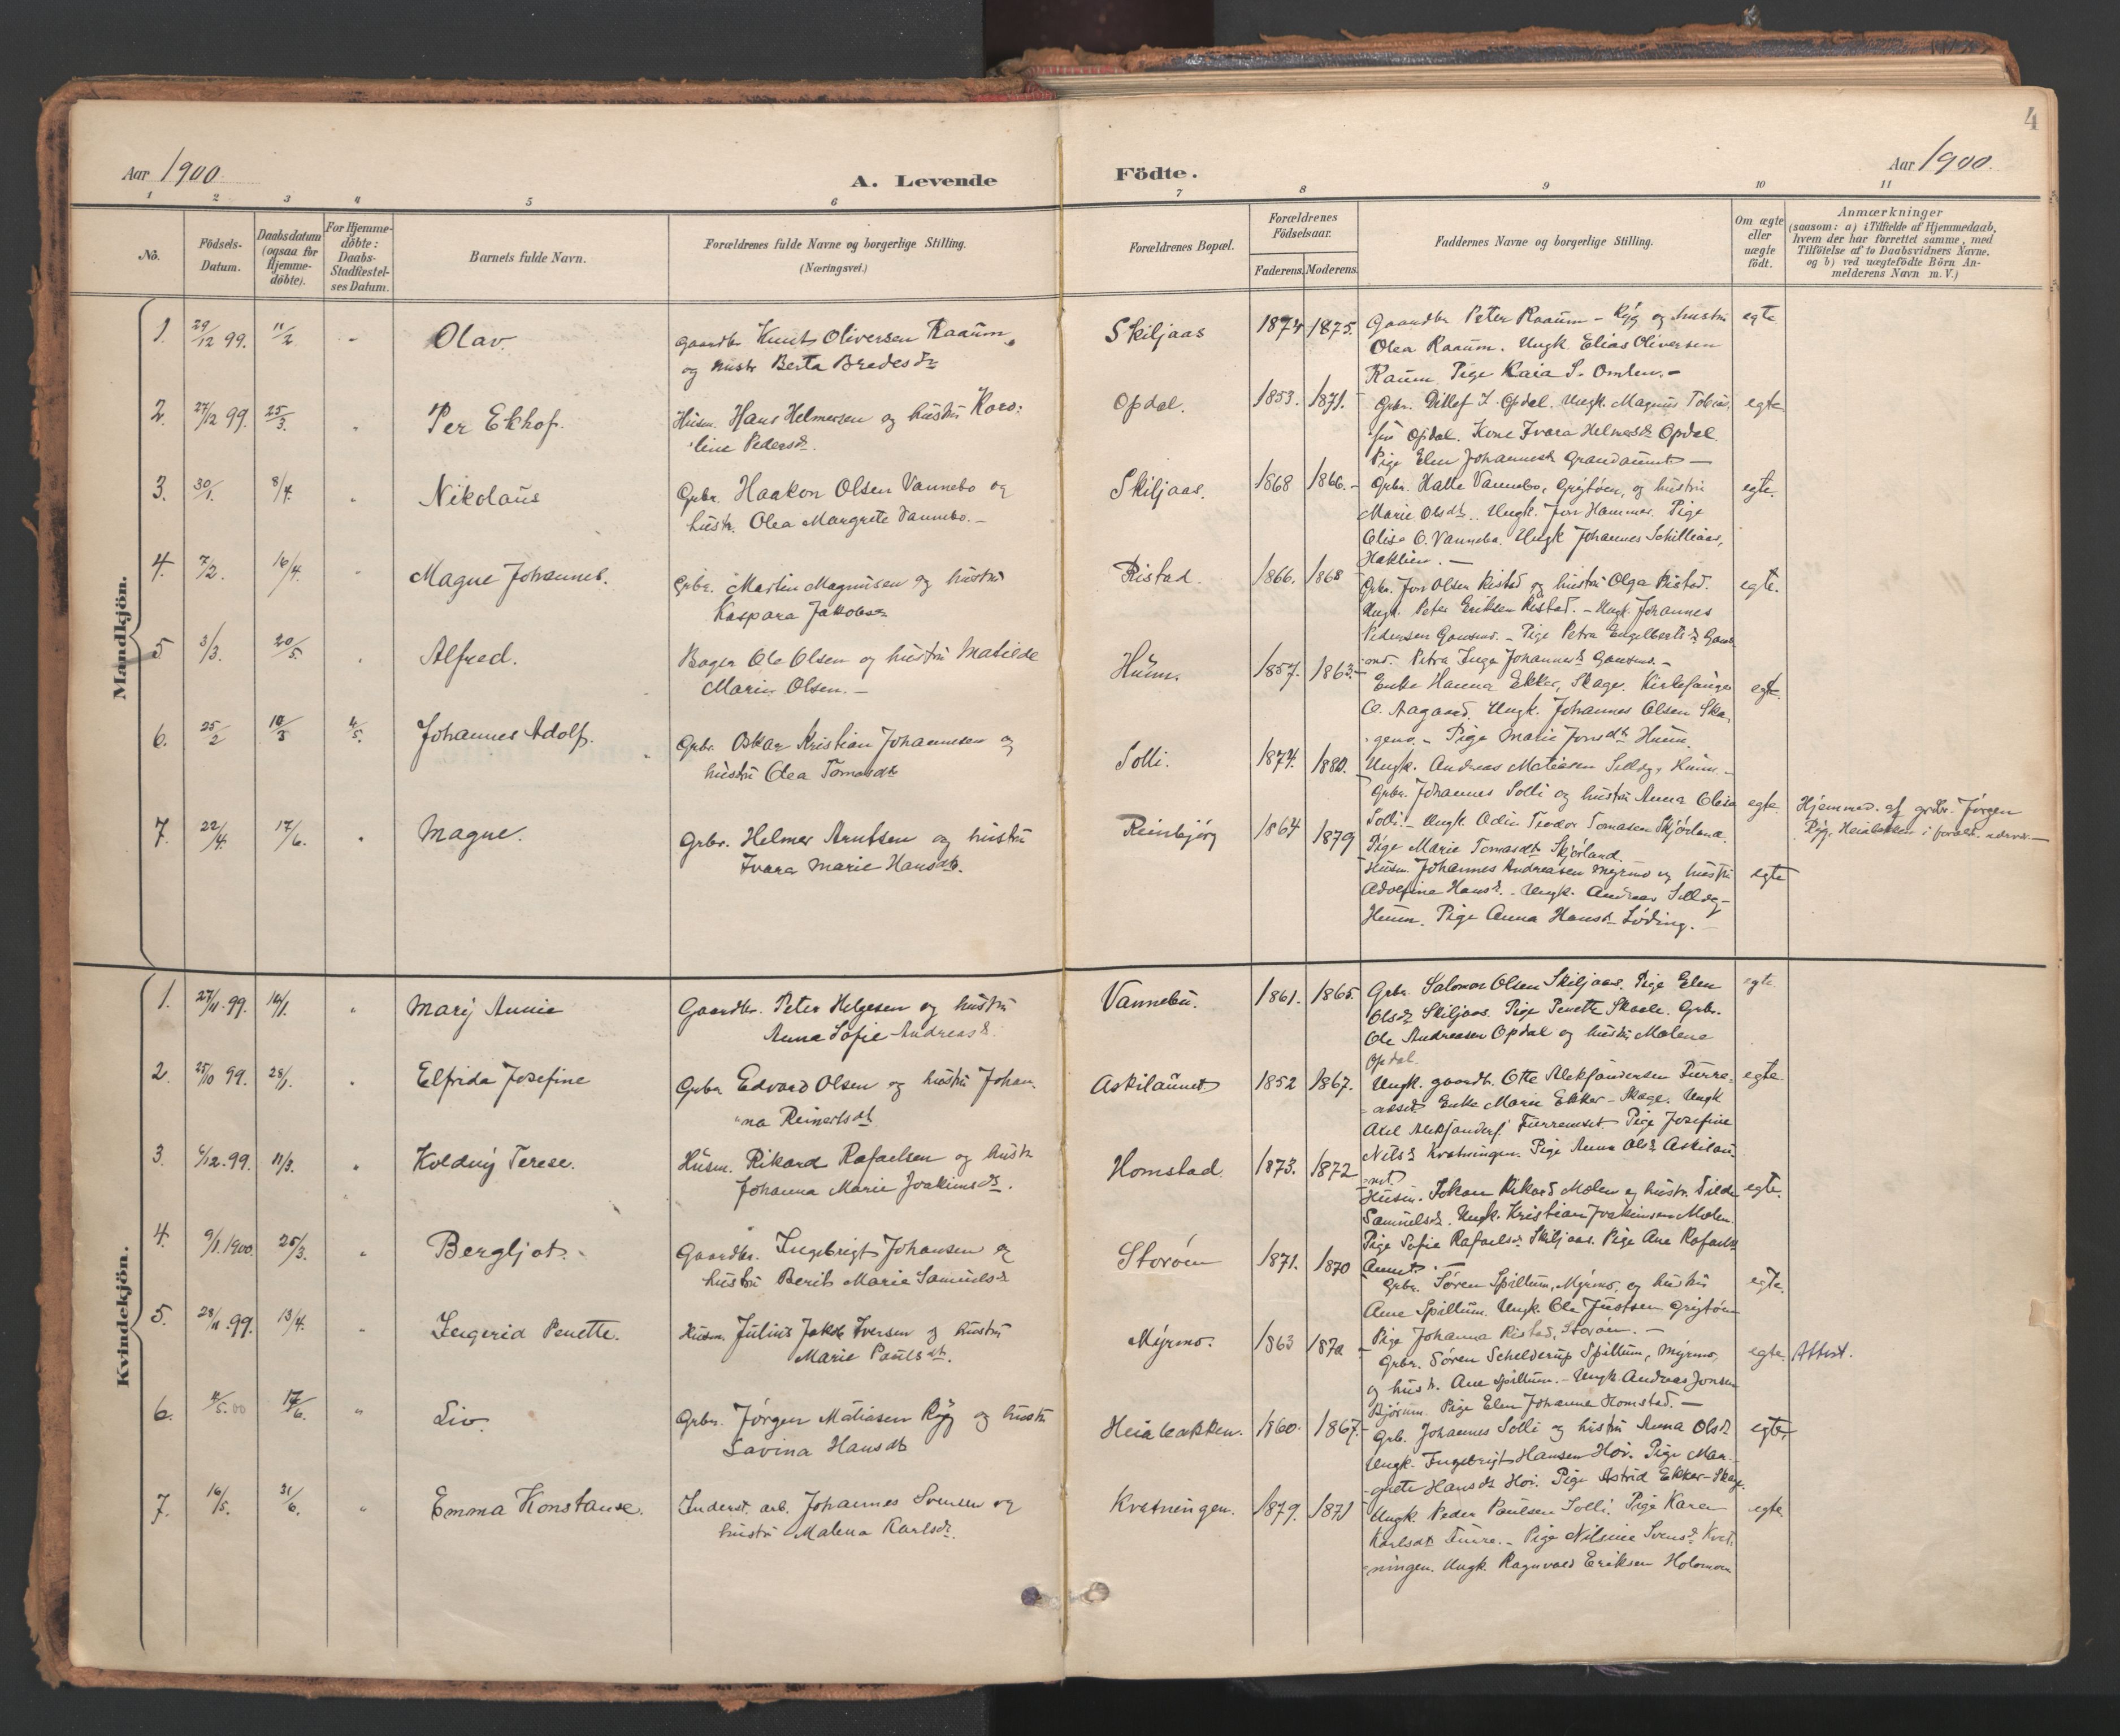 4
Aar 1900
A. Levende Födte.
Aar 1900.
1 2 3 4 5 6 7 8 9 10 11
No.
Födsels-
Datum.
Daabsdatum
(ogsaa for
Hjemme-
döbte).
For Hjemme-
döbte:
Daabs-
Stadfæstel-
ses Datum.
Barnets fulde Navn.
Forældrenes fulde Navne og borgerlige Stilling.
(Næringsvei.)
Forældrenes Bopæl.
Forældrenes
Födselsaar.
Faderens. Moderens.
Faddernes Navne og borgerlige Stilling.
Om ægte
eller
uægte
födt.
Anmærkninger
(saasom: a) i Tilfælde af Hjemmedaab,
hvem der har forrettet samme, med
Tilföielse af to Daabsvidners Navne,
og b) ved uægtefödte Börn An-
melderens Navn m. V.)
Mandkjön.
1. 29/12 99. 11/2 " Olav. Gaardb. Knut Oliversen Raaum
og hustr. Berta Bredesdr
Skiljaas 1874 1875. Gaardbr Peter Raaum - Ryg og hustru egte
Olea Raaum. Ungk. Elias Oliversen
Raum. Pige Kaia S. Omlien. -
2. 27/12 99. 25/3. " Per Ekhof. Husm. Hans Helmersen og hustru Karo:
line Pedersdr.
Opdal. 1853. 1871. Grbr. Ditlef I. Opdal. Ungk. Magnus Tobias, egte
sen Opdal. Kone Ivara Helmersdr Opdal.
Pige Elen Johannesdr Grandaunet -
3. 30/1. 8/4. " Nikolaus Grbr. Haakon Olsen Vannebo og
hustr. Olea Margrete Vannebo. -
Skiljaas. 1868 1866. - Grbr. Halle Vannebo, Grigtöen, og hustru egte.
Marie Olsdtr. Ungk. Jon Hammer. Pige
Elise O. Vannebo. Ungk Johannes Schilliaas,
Haklien. -
4. 7/2. 16/4. " Magne Johannes. Grbr. Martin Magnusen og hustru
Kaspara Jakobsdr
Ristad. 1866. 1868 Grbr. Jon Olsen Ristad og hustru Olga Ristad. egte.
Ungk. Peter Eriksen Ristad. - Ungk. Johannes
Pedersen Gansmo. - Pige Petra Engelbertsdr Gans-
mo. Petra Inga Johannesdr Gansmo. -
5. 3/3. 20/5. " Alfred. Bager Ole Olsen og hustru Matilde
Marie Olsen. -
Hunn. 1857. 1863. - Enke Hanna Ekker, Skage. Kirkesanger egte.
O. Aagaard. Ungk. Johannes Olsen Ska,
geno. - Pige Marie Jonsdtr Hunn.
Ungk. Andreas Matiasen Selleg, Hunn. -
6. 25/2 18/3 4/5. Johannes Adolf. Grbr. Oskar Kristian Johannesen og
hustru Olea Tomasdtr
Solli. 1874. 1880. Grbr. Johannes Solli og hustru Anna Olesa egte Hjemmed. af grdbr. Jørgen
Solli - Ungk. Odin Teodor Tomasen Skjörland. Ryg, Heiabakken i foræld. nærvær. -
Pige Marie Tomasdtr Skjörland.
7. 22/4. 17/6. " Magne. Grbr. Helmer Arntsen og hustru
Ivara Marie Hansdtr.
Reinbjörg 1864 1879 Husm. Johannes Andreasen Myrmo og hustru egte
Adolfine Hansdr. - Ungk. Andreas Selleg -
Hunn. Pige Anna Hansdr Löding. -
Kvindekjön.
1. 27/11. 99. 14/1. " Marij Annie Gaardbr. Peter Helgesen og hustru
Anna Sofie Andreasdr.
Vannebu. 1861. 1865. Grbr. Salomon Olsen Skiljaas. Pige Elen egte.
Olsdr Skiljaas. Pige Penette Skaale. Grbr.
Ole Andreasen Opdal og hustru Malene
Opdal.
2. 25/10 99. 28/1. " Elfrida Josefine Grbr Edvard Olsen og hustru Johan,
na Reinertsdtr
Askilaunet 1852 1867. Ungk. gaardb. Otto Aleksandersen Furre- egte
mset. Enke Marie Ekker - Skage. Ungk
Axel Aleksanders. Furremset. Pige Josefine
Nilsdr Kvetningen. Pige Anna Olsdr Askilau-
net.
3. 6/12. 99. 11/3. " Koldny Terese. Husm. Rikard Rafaelsen og hustr
Johanna Marie Joakimsdr.
Homstad. 1873. 1872 Husm. Johan Rikard Molen og hustr. Tilda egte.
Samuelsdr. Ungk. Kristian Joakimsen Molen.
Pige Sofie Rafaelsdr Skiljaas. Pige Ane Rafaelsdr
Aunet. -
4. 9/1. 1900. 25/3. " Bergljot. Gaardbr. Ingebrigt Johansen og
hustru Berit Marie Samuelsdr
Storöen 1871. 1870 Grbr. Sören Spillum, Myrmo, og hustru egte.
Ane Spillum. Ungk. Ole Justsen Grigtöen
Pige Johanna Ristad, Storöen. -
5. 28/11. 99. 13/4. " Ingerid Penette. Husm. Julius Jakob Iversen og hustru
Marie Paulsdtr.
Myrmo. 1863 1870 - Grbr. Sören Schelderup Spillum, Myrmo, egte. Attest.
og hustr. Ane Spillum. - Ungk. Andreas Jonsen
Bjørum. Pige Elen Johanna Homstad. -
6. 4/5. 00 17/6. " Liv. Grbr. Jørgen Matiasen Ryg og hustru
Lavina Hansdtr
Heiabakken. 1860. 1867. - Grb. Johannes Solli og hustru Anna Olsdr egte
Ungk. Ingebrigt Hansen Hov. Pige Mar-
grete Hansdtr Hov. Pige Astrid Ekker - Skage.
7. 16/5. 31/6. " Emma Konstanse. Inderst. arb. Johannes Svensen og
hustru Malena Karlsdr.
Kvetningen. 1879. 1871 Ungk. Peder Paulsen Solli. Pige Karen egte
Karlsdtr Furre. - Pige Nilsine Svensdr Kvet,
ningen. Ungk. Ragnvald Eriksen Holomoen